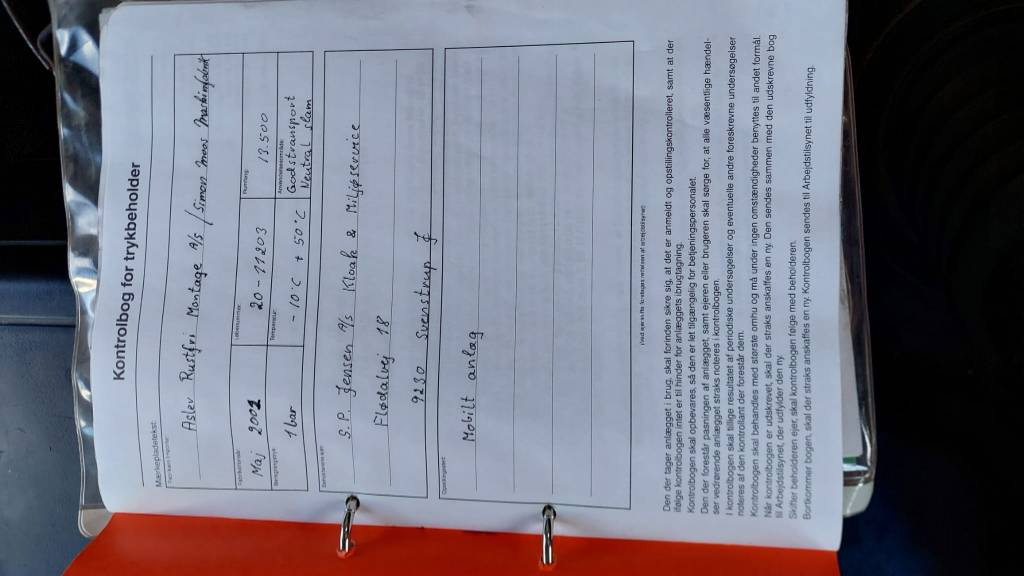 Kontrolbog for trykbeholder
Mærkepladetekst:
Aslev Rustfri Montage A/S / Simon Moos Maskinfabrik
Maj 2001
20-11203
Rumfang:
13.500
1 bar
Temperatur:
-10°C + 50°C
Godstransport
Neutral slam
S.P. Jensen A/S Kloak & Miljøservice
Flødalvej 18
9230 Svenstrup J
Mobilt anlæg
(Ved ejerskifte foretages rettelsen af arbejdstilsynet)
Den der tager anlægget i brug, skal forinden sikre sig, at det er anmeldt og opstillingskontrolleret, samt at der
ifølge kontrolbogen intet er til hinder for anlæggets ibrugtagning.
Kontrolbogen skal opbevares, så den er let tilgængelig for betjeningspersonalet.
Den der forestår pasningen af anlægget, samt ejeren eller brugeren skal sørge for, at alle væsentlige hændel-
ser vedrørende anlægget straks noteres i kontrolbogen.
I kontrolbogen skal tillige resultatet af periodiske undersøgelser og eventuelle andre foreskrevne undersøgelser
noteres af den kontrollant der forestår dem.
Kontrolbogen skal behandles med største omhu og må under ingen omstændigheder benyttes til andet formål.
Når kontrolbogen er udskrevet, skal der straks anskaffes en ny. Den sendes sammen med den udskrevne bog
til Arbejdstilsynet, der udfylder den ny.
Skifter beholderen ejer, skal kontrolbogen følge med beholderen.
Bortkommer bogen, skal der straks anskaffes en ny. Kontrolbogen sendes til Arbejdstilsynet til udfyldning.